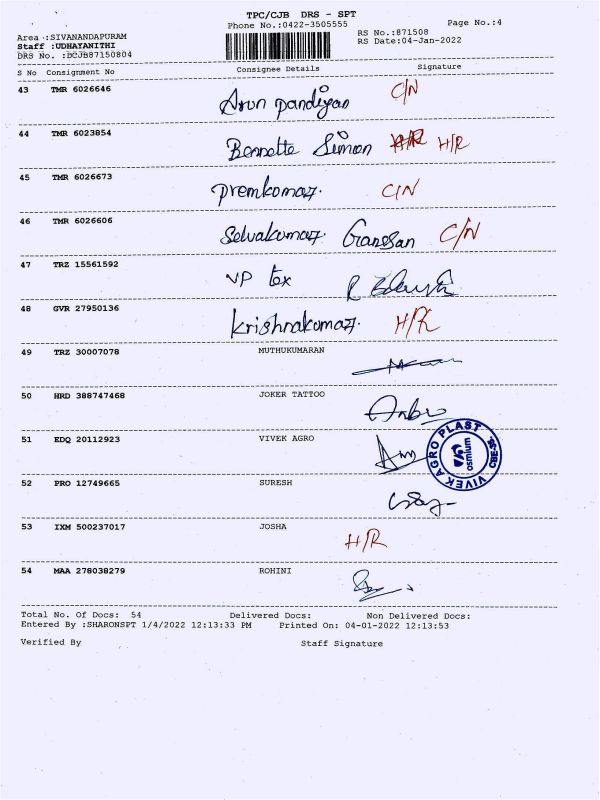 TPC/CJB DRS - SPT
Phone No.:0422-3505555
Page No.:4
Area :SIVANANDAPURAM
RS No.:871508
Staff :UDHAYANITHI
RS Date:04-Jan-2022
DRS No. :DCJB87150804
S No Consignment No Consignee Details Signature
43 TMR 6026646 Arun pandiyan C/N
44 TMR 6023854 Bennette Simon H/R H/R
45 TMR 6026673 premkumar. C/N
46 TMR 6026606 Selvakumar. Ganesan C/N
47 TRZ 15561592 VP tex
48 GVR 27950136 krishnakumar. H/R
49 TRZ 30007078 MUTHUKUMARAN
50 HRD 388747468 JOKER TATTOO
51 EDQ 20112923 VIVEK AGRO
VIVEK AGRO PLAST
osmium
52 PRO 12749665 SURESH
53 IXM 500237017 JOSHA H/R
54 MAA 278038279 ROHINI
Total No. Of Docs: 54 Delivered Docs: Non Delivered Docs:
Entered By :SHARONSPT 1/4/2022 12:13:33 PM Printed On: 04-01-2022 12:13:53
Verified By Staff Signature